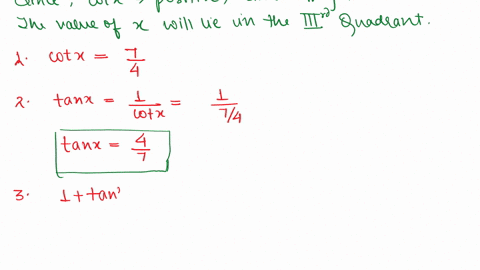 The value of x will lie in the IIIrd Quadrant.
1. cotx = 7/4
2. tanx = 1/cotx = 1/7/4
tanx = 4/7
3. 1 + tan